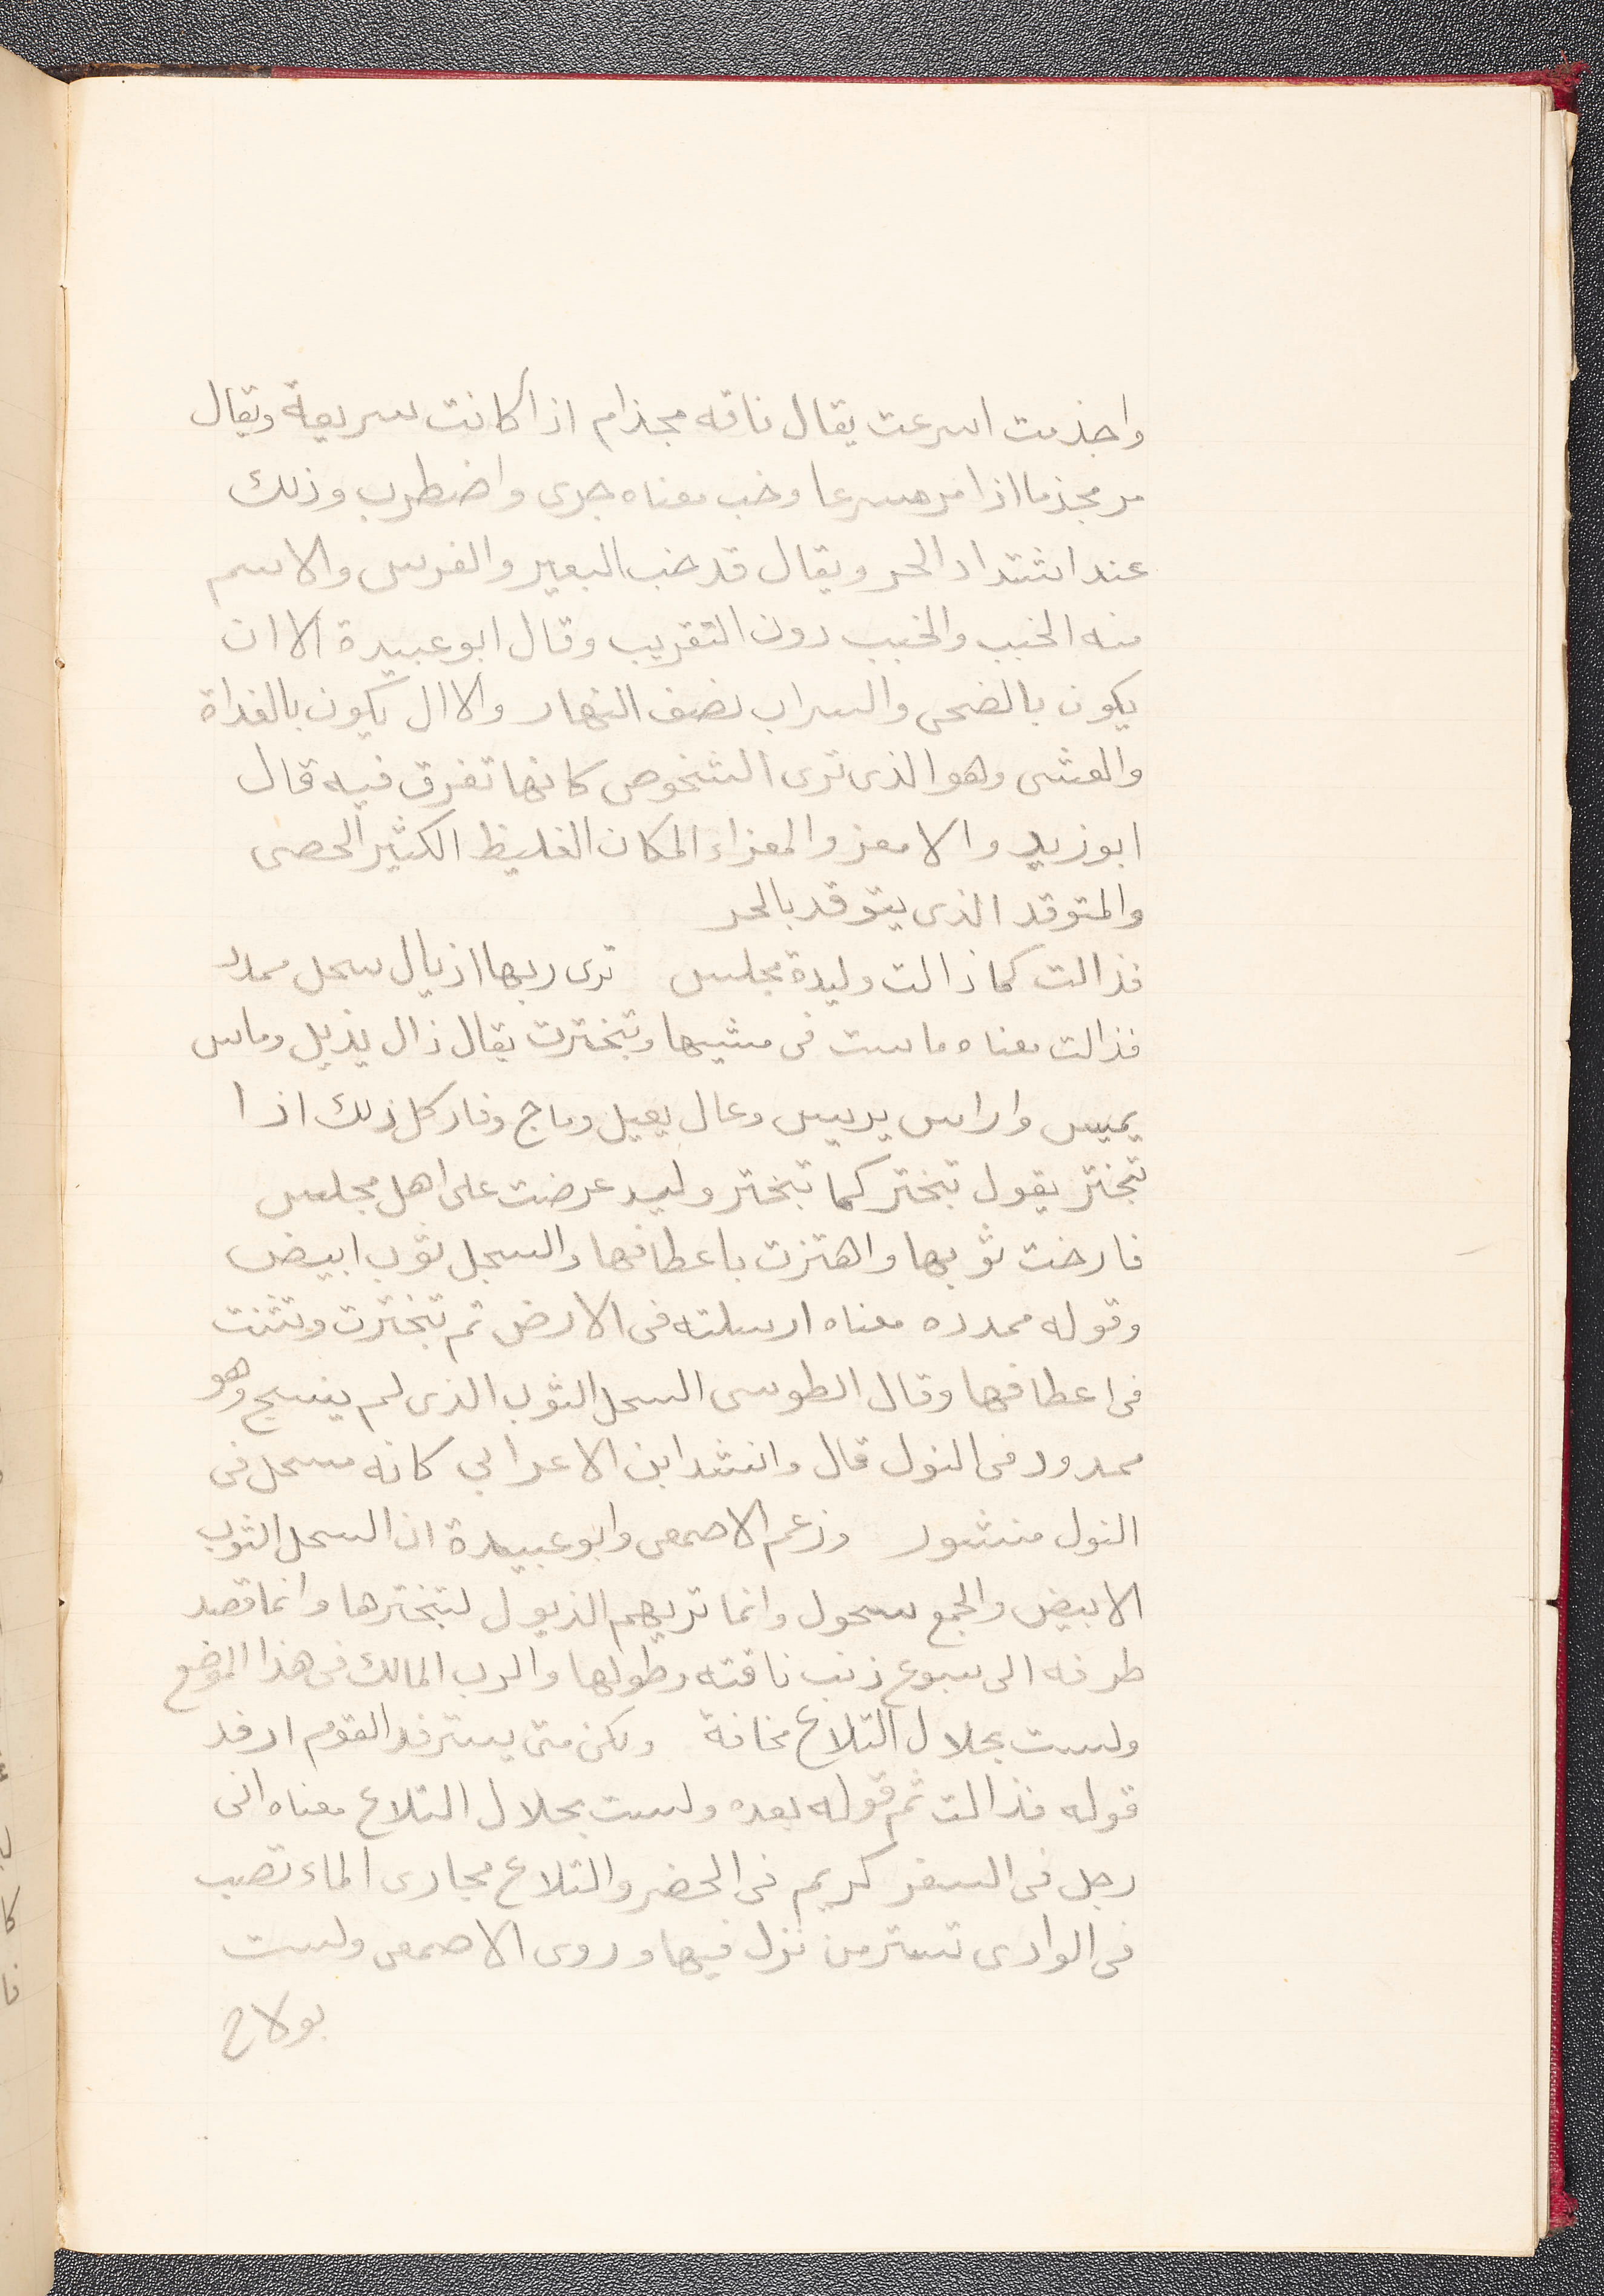 واجذمت اسرعت يقال ناقه مجذام اذا كانت سريعة ويقال
مر مجذما اذا مر مسرعا وخب معناه جرى واضطرب وذلك
عند اشتداد الحر ويقال قد خب البعير والفرس والاسم
منه الخبب والخبب دون التقريب وقال ابو عبيدة الاان
يكون بالضحى والسراب نصف النهار والاال يكون بالغداة
والعشى وهو الذى ترى الشخوص كانها تفرق فيه قال
ابو زيد والامعز والمعزاء المكان الغليظ الكثير الحصى
والمتوقد الذى يتوقد بالحر
فذالت كما ذالت وليدة مجلس ترى ربها اذيال سحل ممدد
فذالت معناه ماست فى مشيها وتبخترت يقال ذال يذيل وماس
يميس واراس يريس وعال يعيل وماج وفار كل ذلك اذا
تبختر يقول تبختر كما تبختر وليد عرضت على اهل مجلس
فارخت ثوبها واهتزت باعطافها والسجل ثوب ابيض
وقوله ممدده معناه ارسلته فى الارض ثم تبخترت وتثنت
فى اعطافها وقال الطوسى السحل الثوب الذى لم ينسج وهو
ممدود فى النول قال وانشد ابن الاعرابي كانه مسحل فى
النول منشور وزعم الاصمعى وابو عبيدة ان السحل الثوب
الابيض والجمع سحول وانما تريهم الذيول لتبخترها وانما قصد
طرفه الى سبوع ذنب ناقته وطولها والرب المالك فى هذا الموضع
ولست بحلال التلاع مخافة ولكن متى يسترفد القوم ارفد
قوله فذالت ثم قوله بعده ولست بحلال التلاع معناه انى
رجل فى السفر كريم فى الحضر والتلاع مجارى الماء تصب
فى الوادى تستر من نزل فيها وروى الاصمعى ولست
بولاج